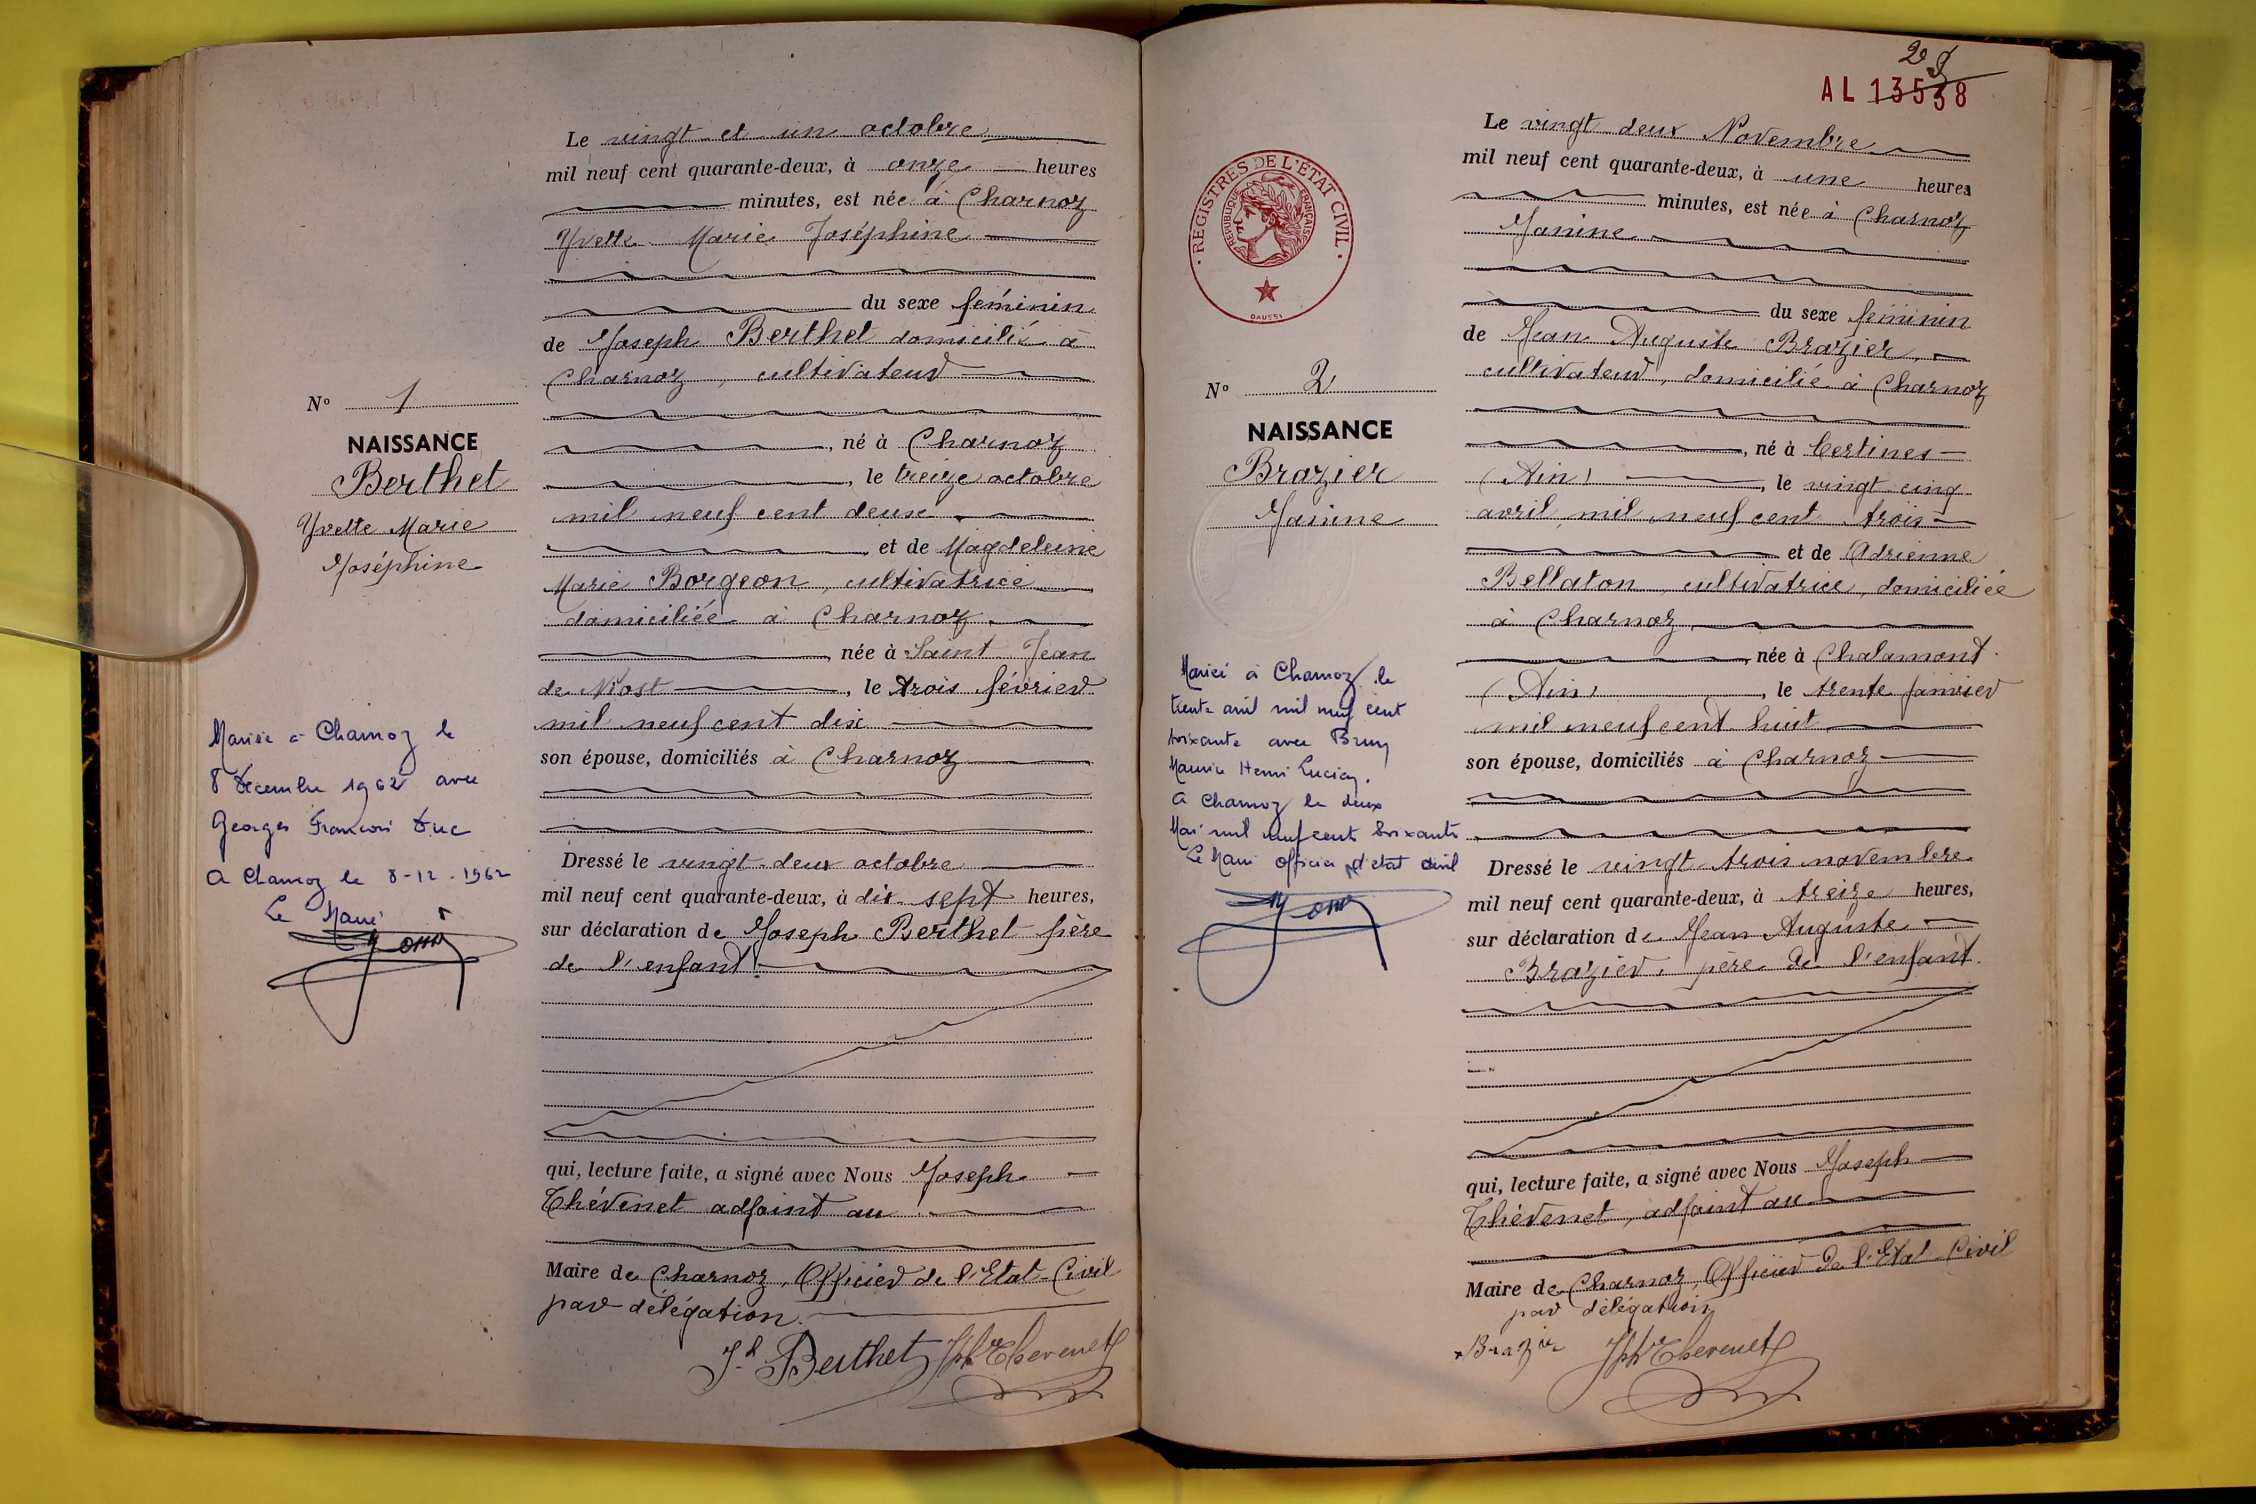 Le vingt et un octobre
mil neuf cent quarante-deux, à onze heures
minutes, est née à Charnoz
Yvette Marie Joséphine
du sexe féminin
de Joseph Berthet domicilié à
Charnoz, cultivateur
né à Charnoz
, le treize octobre
mil neuf cent deux
et de Magdeleine
Marie Borgeon, cultivatrice
domiciliée à Charnoz
née à Saint Jean
de Niost, le trois février
mil neuf cent dix
son épouse, domiciliés à Charnoz
Dressé le vingt-deux octobre
mil neuf cent quarante-deux, à dix-sept heures,
sur déclaration de Joseph Berthet père
de l'enfant.
qui, lecture faite, a signé avec Nous Joseph
Thévenet adjoint au
Maire de Charnoz, Officier de l'Etat-Civil
par délégation.
Jh Berthet Jph Thevenet
No 1
NAISSANCE
Berthet
Yvette Marie
Joséphine
Mariée à Charnoz le
8 Décembre 1962 avec
Georges François Duc
A Charnoz le 8-12-1962
Le Maire
28
AL 13538
Le vingt deux Novembre
mil neuf cent quarante-deux, à une heures
minutes, est née à Charnoz
Janine
du sexe féminin
de Jean Auguste Brazier,
cultivateur, domicilié à Charnoz
, né à Certines
(Ain), le vingt cinq
avril mil neuf cent trois
et de Adrienne
Bellaton, cultivatrice, domiciliée
à Charnoz
née à Chalamont
(Ain), le trente janvier
mil neuf cent huit
son épouse, domiciliés à Charnoz
Dressé le vingt trois novembre
mil neuf cent quarante-deux, à treize heures,
sur déclaration de Jean Auguste
Brazier, père de l'enfant.
qui, lecture faite, a signé avec Nous Joseph
Thévenet, adjoint au
Maire de Charnoz, Officier de l'Etat-Civil
par délégation
Brazier Jph Thevenet
REGISTRES DE L'ETAT CIVIL
REPUBLIQUE FRANÇAISE
DAUSSI
No 2
NAISSANCE
Brazier
Janine
Mariée à Charnoz le
trente avril mil neuf cent
soixante avec
Maurice Henri Lucien.
A Charnoz le deux
Mai mil neuf cent soixante
Le Maire officier d'état civil